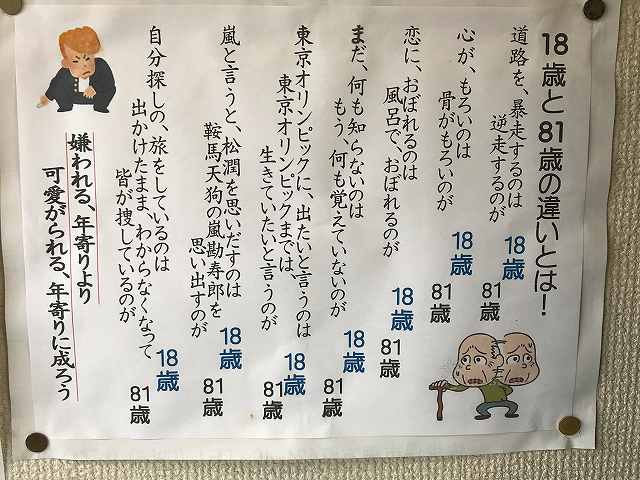 18歳と81歳の違いとは！
道路を、暴走するのは 18歳
逆走するのが 81歳
心が、もろいのは 18歳
骨がもろいのが 81歳
恋に、おぼれるのは 18歳
風呂で、おぼれるのが 81歳
まだ、何も知らないのは 18歳
もう、何も覚えていないのが 81歳
東京オリンピックに、出たいと言うのは 18歳
東京オリンピックまでは、
生きていたいと言うのが 81歳
嵐と言うと、松潤を思いだすのは 18歳
鞍馬天狗の嵐勘寿郎を
思い出すのが 81歳
自分探しの、旅をしているのは 18歳
出かけたまま、わからなくなって
皆が捜しているのが 81歳
嫌われる、年寄りより
可愛がられる、年寄りに成ろう